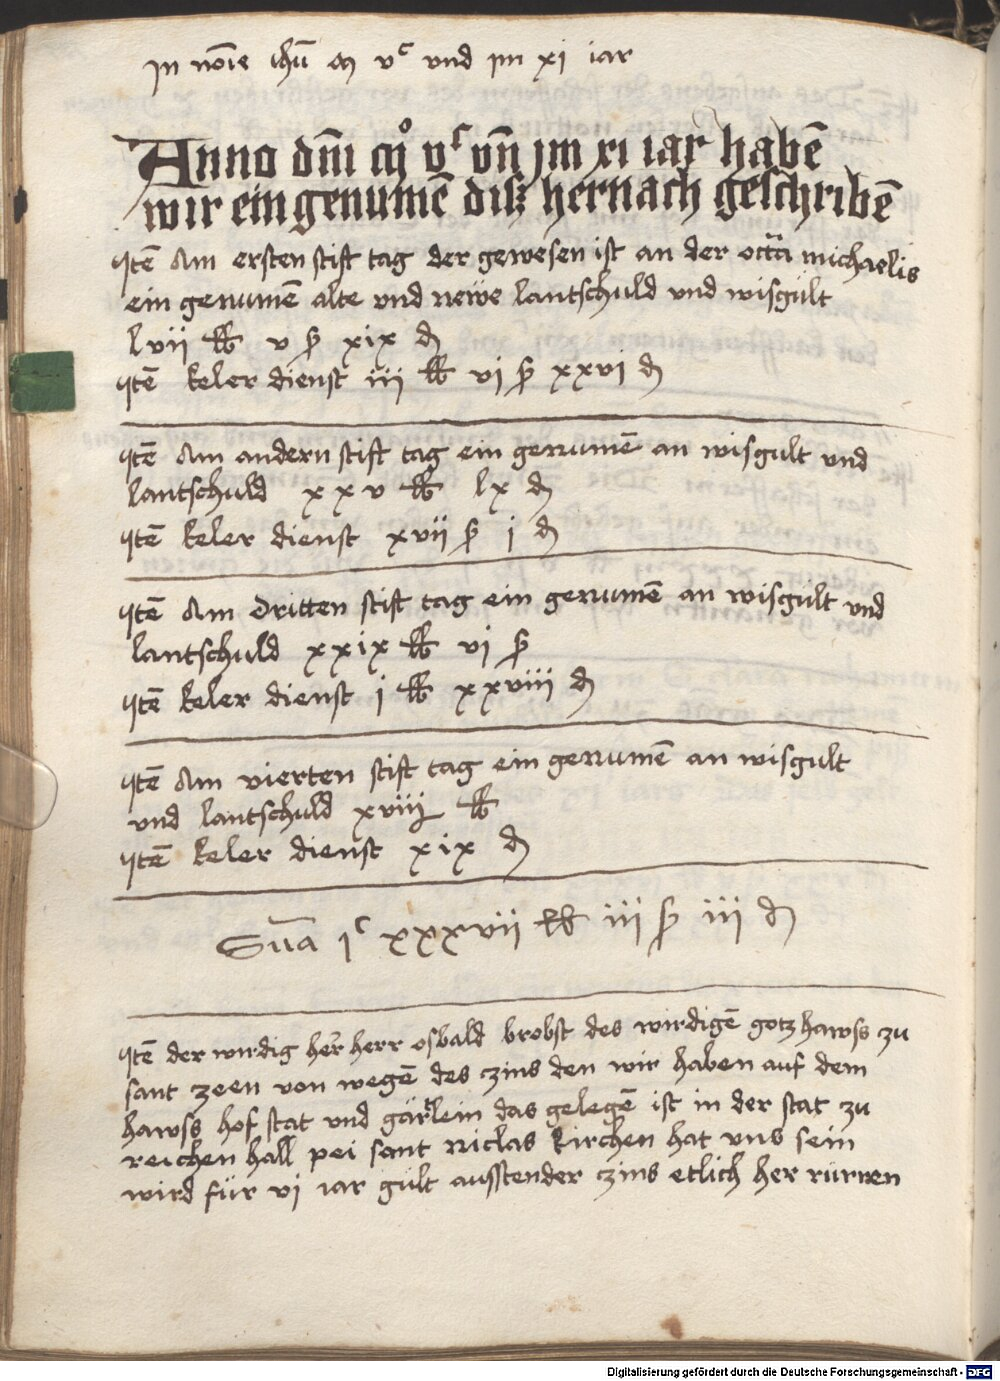 In noīe ihū m vc vnd im xi iar
Anno dm̄i mo vc vn̄ im xi iar habē
wir ein genumē disz hernach geschribē
Itē Am ersten stift tag der gewesen ist an der octa michaelis
ein genumē alte vnd newe lantschuld vnd wisgült
lvii ℔ v ß xix ₰
Itē keler dienst iii ℔ vi ß xxvi ₰
Itē Am andern stift tag ein genumē an wisgult vnd
lantschuld xxv ℔ lx ₰
Itē keler dienst xvii ß i ₰
Itē Am dritten stift tag ein genumē an wisgült vnd
lantschuld xxix ℔ vi ß
Itē keler dienst i ℔ xxviii ₰
Itē Am vierten stift tag ein genumē an wisgült
vnd lantschuld ℔
Itē keler dienst xix ₰
Sūa ic xxxvii ℔ iii ß iii ₰
Itē der wirdig her herr osbald brobst des wirdigē gotzhawss zu
sant zeen von wegē des czins den wir haben auf dem
hawss hof stat vnd gärtlein das gelegē ist in der stat zu
reichen hall pei sant niclas kirchen hat vns sein
wird für vi iar gült ausstender czins etlich her rürren
Digitalisierung gefördert durch die Deutsche Forschungsgemeinschaft - DFG